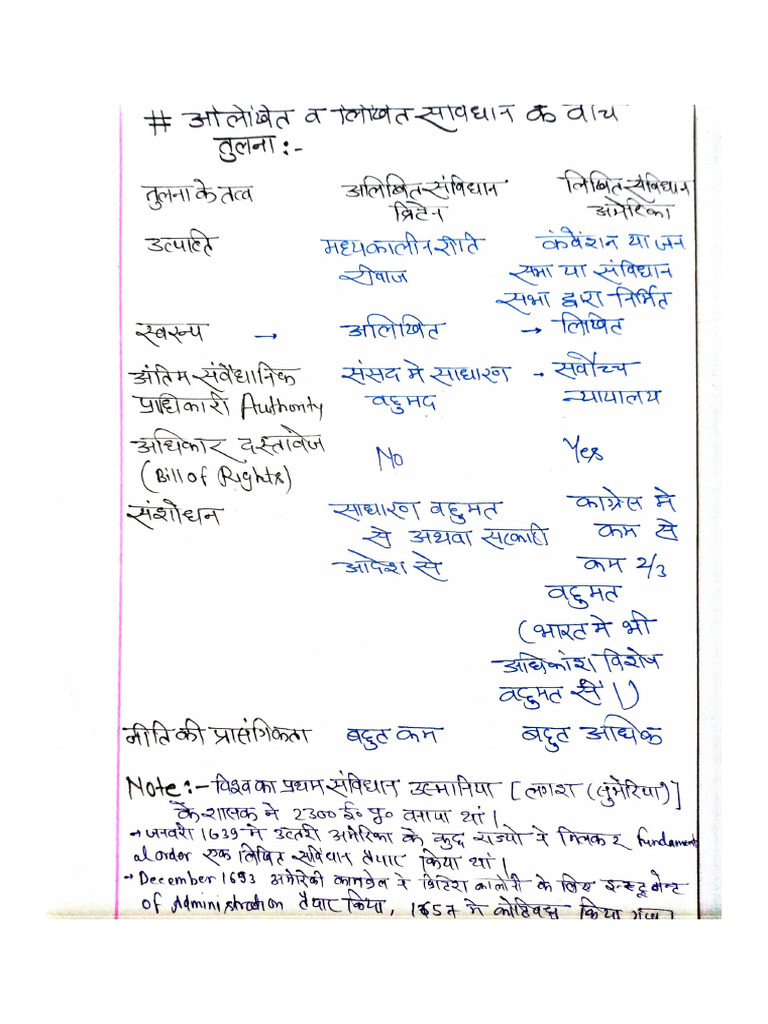 # अलिखित व लिखित संविधान के बीच
तुलना :-
तुलना के तत्व अलिखित संविधान लिखित संविधान
ब्रिटेन अमेरिका
उत्पत्ति मध्यकालीन रीति कंवेंशन या जन
रीवाज सभा या संविधान
सभा द्वारा निर्मित
स्वरूप → अलिखित → लिखित
अंतिम संवैधानिक संसद मे साधारण → सर्वोच्च
प्राधिकारी Authority बहुमद न्यायालय
अधिकार दस्तावेज No Yes
(Bill of Rights)
संशोधन साधारण बहुमत काग्रेस मे
से अथवा सरकारी कम से
आदेश से कम 2/3
बहुमत
(भारत मे भी
अधिकांश विशेष
बहुमत से ।)
नीति की प्रासंगिकता बहुत कम बहुत अधिक
Note :- विश्व का प्रथम संविधान उस्मानिया [लगश (सुमेरिया)]
के शासक ने 2300 ई० पू० बनाया था।
→ जनवरी 1639 मे उत्तरी अमेरिका के कुछ राज्यो ने मिलकर fundament
al order एक लिखित संविधान तैयार किया था।
→ December 1653 अमेरिकी ने ब्रिटिश कालोनी के लिए इन्स्ट्रूमेन्ट
of Administration तैयार किया, 1657 मे किया गया